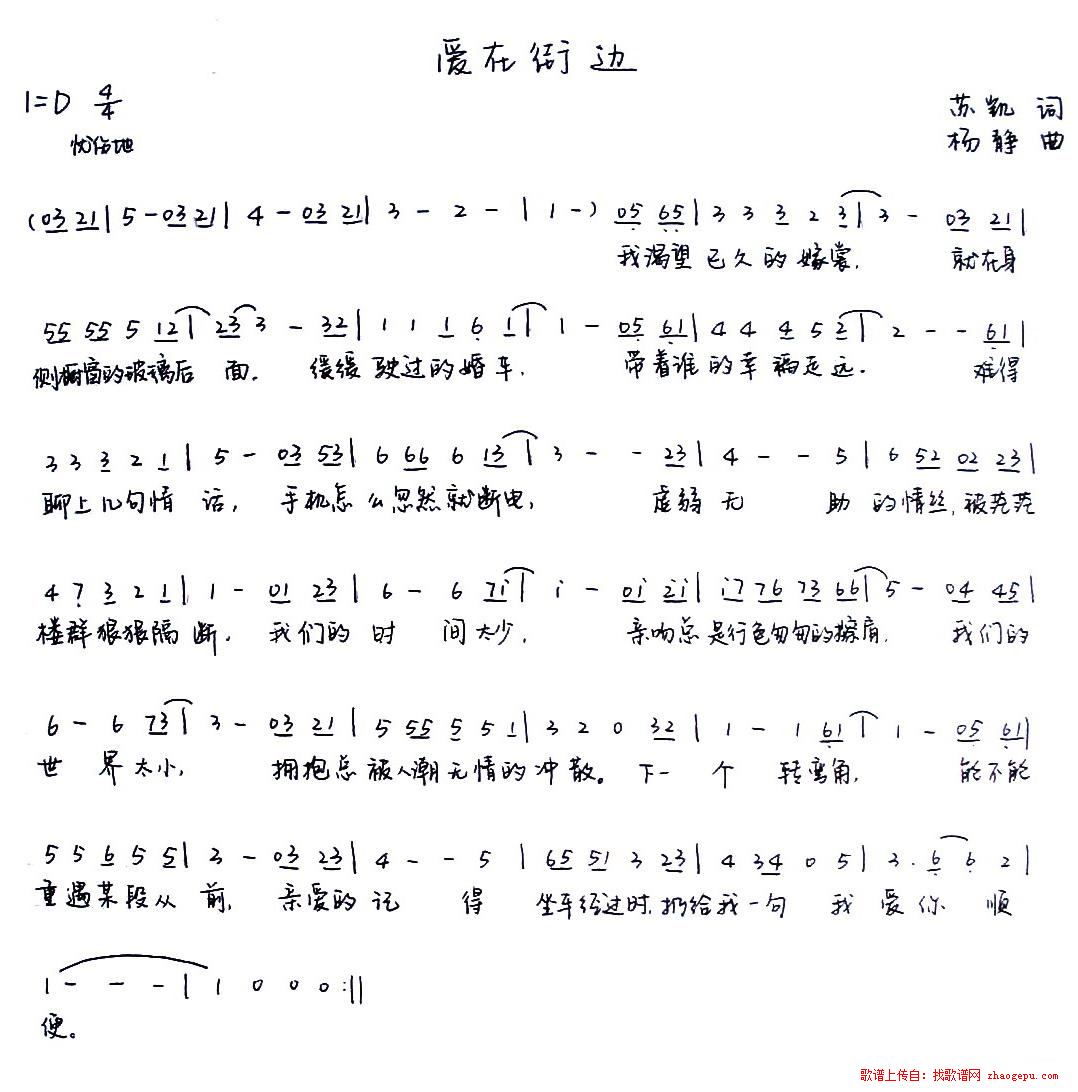 爱在街边
1=D 4/4
苏凯 词
忧伤地
杨静 曲
(03 21 | 5 - 03 21 | 4 - 03 21 | 3 - 2 - | 1 -) 05 65 | 3 3 3 2 3 | 3 - 03 21 |
我渴望已久的嫁裳, 就在身
55 55 5 12 | 23 3 - 32 | 1 1 1 6 1 | 1 - 05 61 | 4 4 4 5 2 | 2 - - 61 |
侧橱窗的玻璃后 面. 缓缓驶过的婚车, 带着谁的幸福走远. 难得
3 3 3 2 1 | 5 - 03 53 | 6 66 6 13 | 3 - - 23 | 4 - - 5 | 6 52 02 23 |
聊上几句情 话, 手机怎么忽然就断电, 虚弱无 助的情丝,被茫茫
4 7 3 2 1 | 1 - 01 23 | 6 - 6 7i | i - 0i 2i | i7 76 73 66 | 5 - 04 45 |
楼群狠狠隔断. 我们的时 间太少, 亲吻总是行色匆匆的擦肩, 我们的
6 - 6 73 | 3 - 03 21 | 5 55 5 5 1 | 3 2 0 32 | 1 - 1 61 | 1 - 05 61 |
世 界太小, 拥抱总被人潮无情的冲散。下一 个 转弯角, 能不能
5 5 6 5 5 | 3 - 03 23 | 4 - - 5 | 65 51 3 23 | 4 34 0 5 | 3. 6 6 2 |
重遇某段从 前, 亲爱的记 得 坐车经过时,扔给我一句 我 爱你 顺
1 - - - | 1 0 0 0 :||
便。
歌谱上传自：找歌谱网 zhaogepu.com